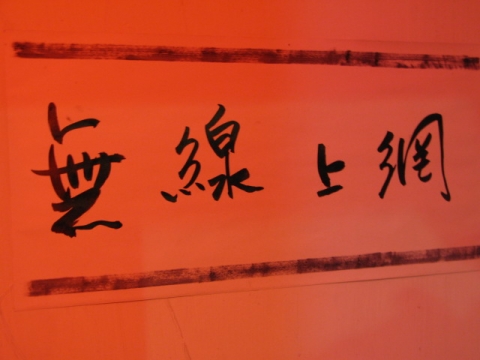 無線上網